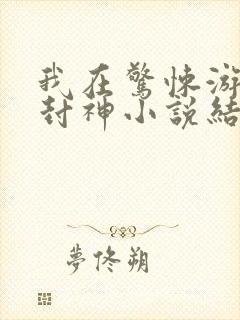 我在驚悚游
封神小說結
夢佟朔